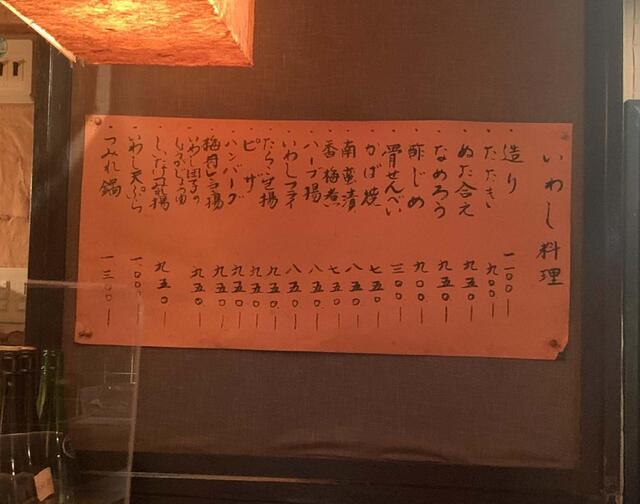 いわし料理
・造り 一一〇〇ー
・たたき 九〇〇ー
・ぬた合え 九五〇ー
・なめろう 九五〇ー
・酢じめ 九〇〇ー
・骨せんべい 三〇〇ー
・かば焼 七五〇ー
・南蛮漬 八五〇ー
・香梅煮 七五〇ー
・ハーブ揚 八五〇ー
・いわしフライ 八五〇ー
・たらこ包揚 九五〇ー
・ピザ 九五〇ー
・ハンバーグ 九五〇ー
・梅肉包揚 九五〇ー
・いわし団子の
しょうがじょうゆ 九五〇ー
・しいたけ包揚 九五〇ー
・いわし天ぷら 一〇〇〇ー
・つみれ鍋 一三〇〇ー